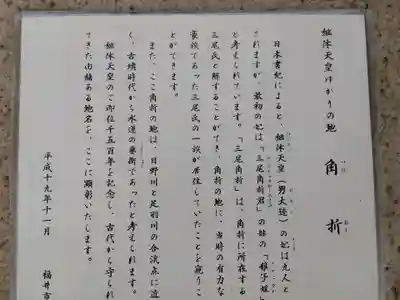 継体天皇ゆかりの地 角折
つの おり
日本書紀によると、継体天皇(男大迹)の妃は九人と
されますが、最初の妃は「三尾角折君」の妹の「稚子媛」
と考えられています。「三尾角折」は、角折に所在する
三尾氏と解することができ、角折の地に、当時の有力な
豪族であった三尾氏の一族が居住していたことを窺うこ
とができます。
また、ここ角折の地は、日野川と足羽川の合流点に近
く、古墳時代から水運の要衝であったと考えられます。
継体天皇のご即位千五百年を記念し、古代から守られ
てきた由緒ある地名を、ここに顕彰いたします。
平成十九年十一月
福井市